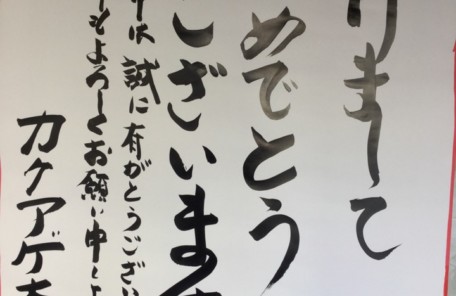 りまして
めでとう
ございます
は 誠に有がとうござい
もよろしくお願い申し上
カケアゲ